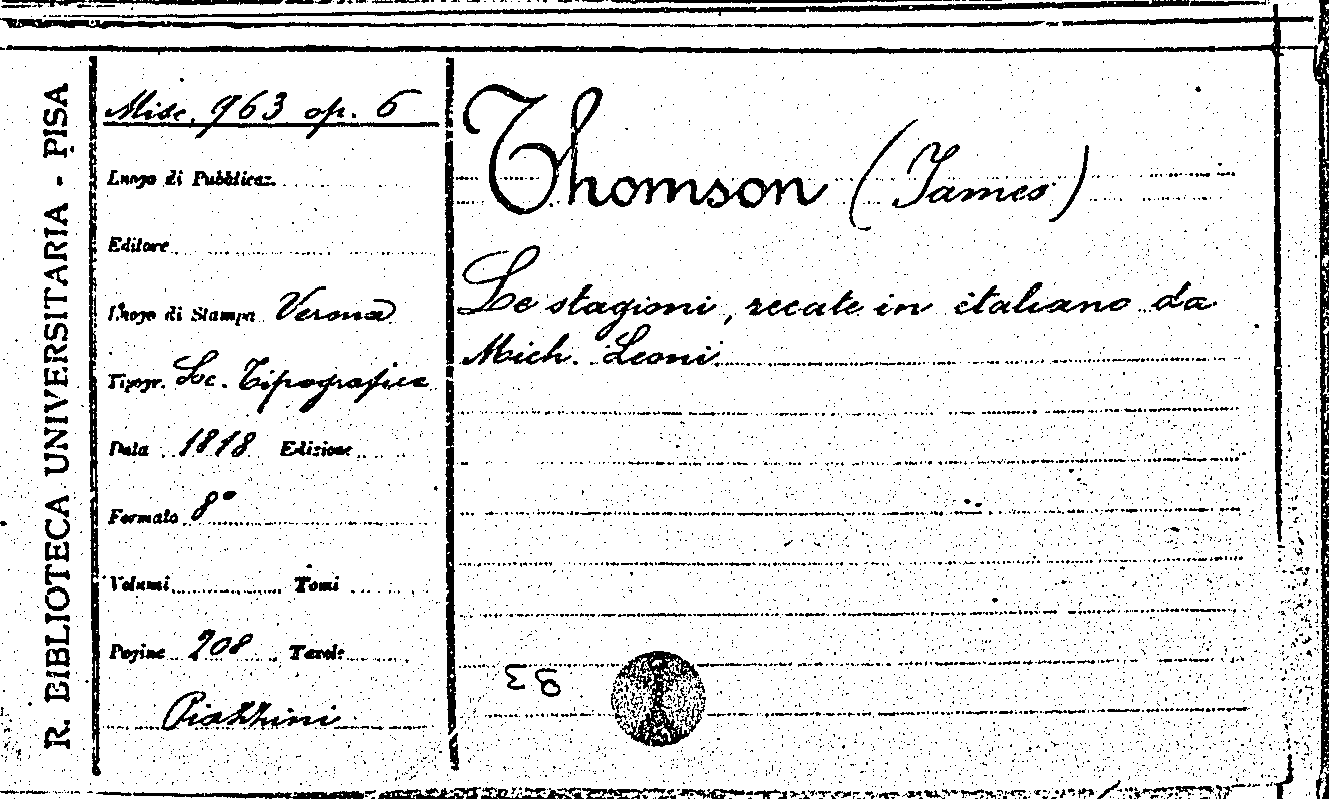 R. BIBLIOTECA UNIVERSITARIA - PISA
Misc. 963 op. 6
Luogo di Pubblicaz.
Editore
Luogo di Stampa Verona
Tipogr. Soc. Tipografica
Data 1818 Edizione
Formato 8°
Volumi Tomi
Pagine 208 Tavole
Piazzini
Thomson (James)
Le stagioni, recate in italiano da
Mich. Leoni.